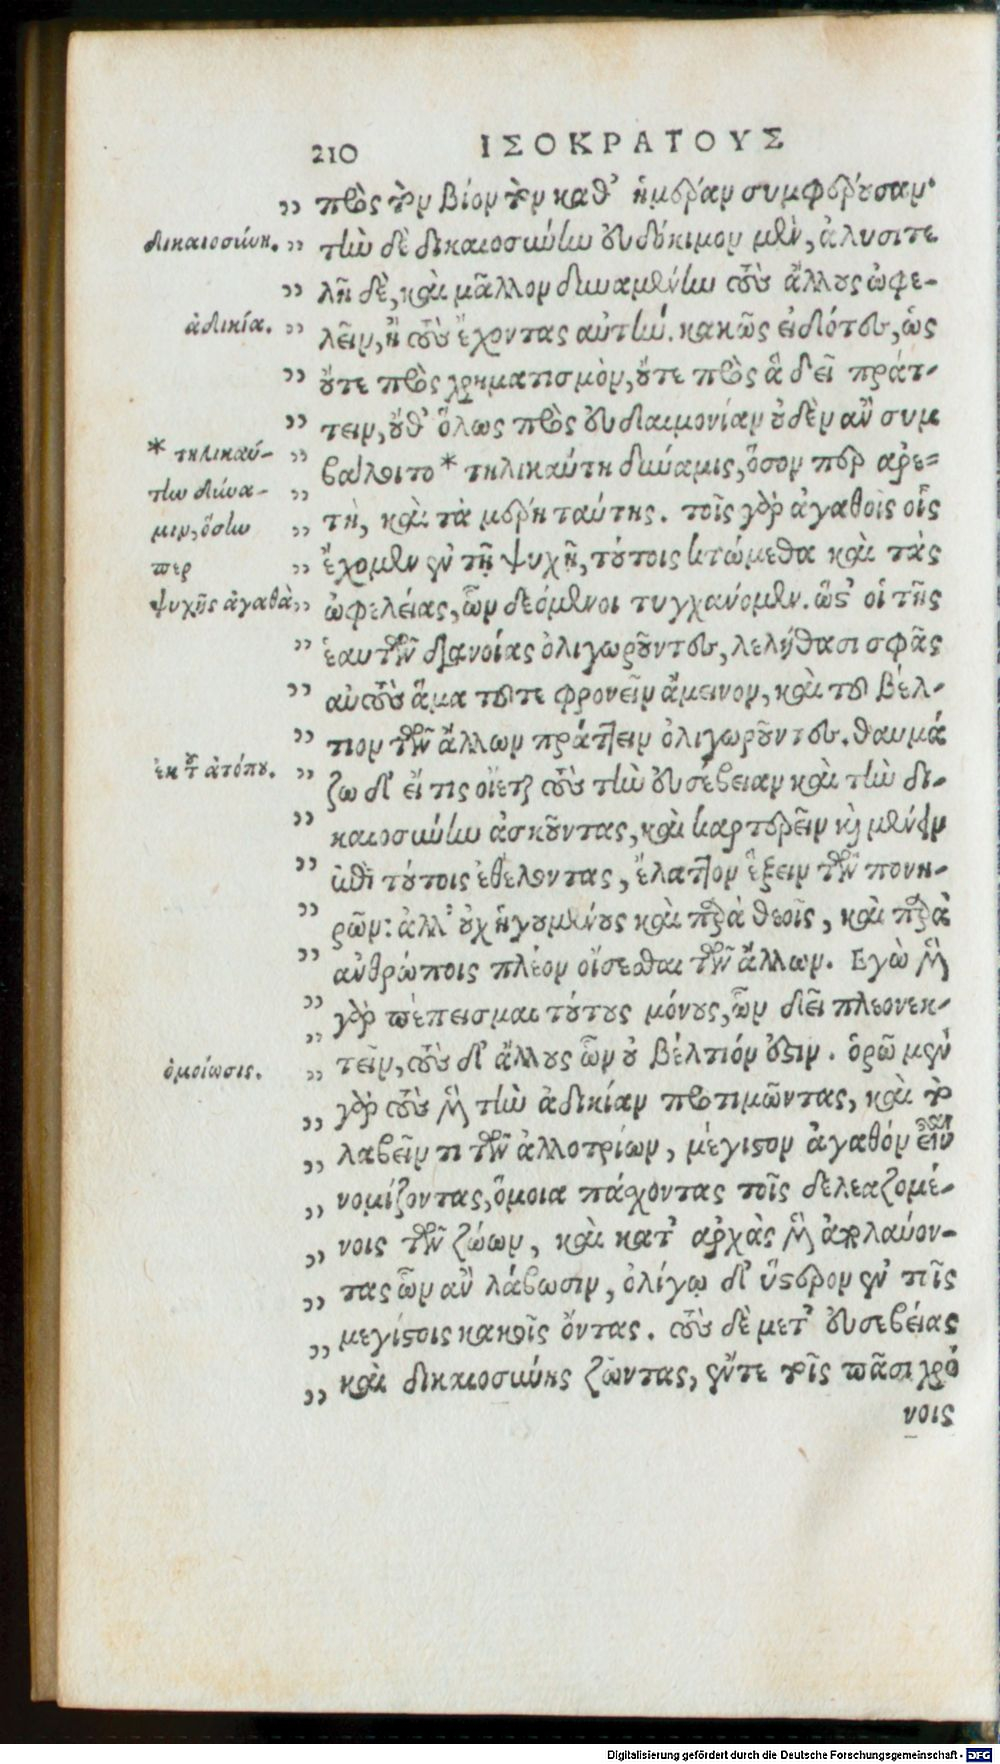 210 ΙΣΟΚΡΑΤΟΥΣ
„ πρὸς τὸν βίον τὸν καθ' ἡμέραν συμφέρουσαν·
δικαιοσύνη. „ τὴν δὲ δικαιοσύνην εὐδόκιμον μὲν, ἀλυσιτε
„ λῆ δὲ, καὶ μᾶλλον δυναμένην τοὺς ἄλλους ὠφε-
ἀδικία. „ λεῖν, ἢ τοὺς ἔχοντας αὐτήν. κακῶς εἰδότες, ὡς
„ οὔτε πρὸς χρηματισμὸν, οὔτε πρὸς ἃ δεῖ πράτ-
„ τειν, οὔθ' ὅλως πρὸς εὐδαιμονίαν οὐδὲν ἂν συμ
* τηλικαύ- „ βάλοιτο * τηλικαύτη δύναμις, ὅσον περ ἀρε=
την δύνα- „ τὴ, καὶ τὰ μέρη ταύτης. τοῖς γὰρ ἀγαθοῖς οἷς
μιν, ὅσην „ ἔχομεν ἐν τῇ ψυχῇ, τούτοις κτώμεθα καὶ τὰς
περ
ψυχῆς ἀγαθὰ „ ὠφελείας, ὧν δεόμενοι τυγχάνομεν. ὥστ' οἱ τῆς
„ ἑαυτῶν διανοίας ὀλιγωροῦντες, λελήθασι σφᾶς
„ αὐτοὺς ἅμα τοῦ τε φρονεῖν ἄμεινον, καὶ τοῦ βέλ-
„ τιον τῶν ἄλλων πράττειν ὀλιγωροῦντες. θαυμά
ἐκ τοῦ ἀτόπου. „ ζω δ' εἴ τις οἴεται τοὺς τὴν εὐσέβειαν καὶ τὴν δι-
„ καιοσύνην ἀσκοῦντας, καὶ καρτερεῖν καὶ μένειν
„ ἐπὶ τούτοις ἐθέλοντας, ἔλαττον ἕξειν τῶν πονη-
„ ρῶν: ἀλλ' οὐχ ἡγουμένους καὶ παρὰ θεοῖς, καὶ παρὰ
„ ἀνθρώποις πλέον οἴσεσθαι τῶν ἄλλων. Εγὼ μὲν
„ γὰρ πέπεισμαι τούτους μόνους, ὧν δεῖ πλεονεκ-
„ τεῖν, τοὺς δ' ἄλλους ὧν οὐ βέλτιόν ἐστιν. ὁρῶ μὲν
ὁμοίωσις. „ γὰρ τοὺς μὲν τὴν ἀδικίαν προτιμῶντας, καὶ τὸ
„ λαβεῖν τι τῶν ἀλλοτρίων, μέγιστον ἀγαθόν εἶναι
„ νομίζοντας, ὅμοια πάσχοντας τοῖς δελεαζομέ-
„ νοις τῶν ζώων, καὶ κατ' ἀρχὰς μὲν ἀπολαύον-
„ τας ὧν ἂν λάβωσιν, ὀλίγῳ δ' ὕστερον ἐν τοῖς
„ μεγίστοις κακοῖς ὄντας. τοὺς δὲ μετ' εὐσεβείας
„ καὶ δικαιοσύνης ζῶντας, ἔν τε τοῖς πᾶσι χρό
νοις
Digitalisierung gefördert durch die Deutsche Forschungsgemeinschaft - DFG